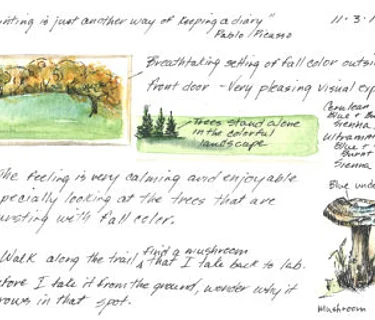 nting is just another way of keeping a diary"
Pablo Picasso
11.3.1
Breathtaking setting of fall color outsi
front door - Very pleasing visual exp
Trees stand alone
in the colorful
landscape
Cerulean
Blue & Bu
Sienna
Ultramar
Blue &
Burnt
Sienna
The feeling is very calming and enjoyable
pecially looking at the trees that are
ursting with fall color.
Blue und
Walk along the trail find a mushroom
that I take back to lab.
efore I take it from the ground, wonder why it
rows in that spot.
Mushroom